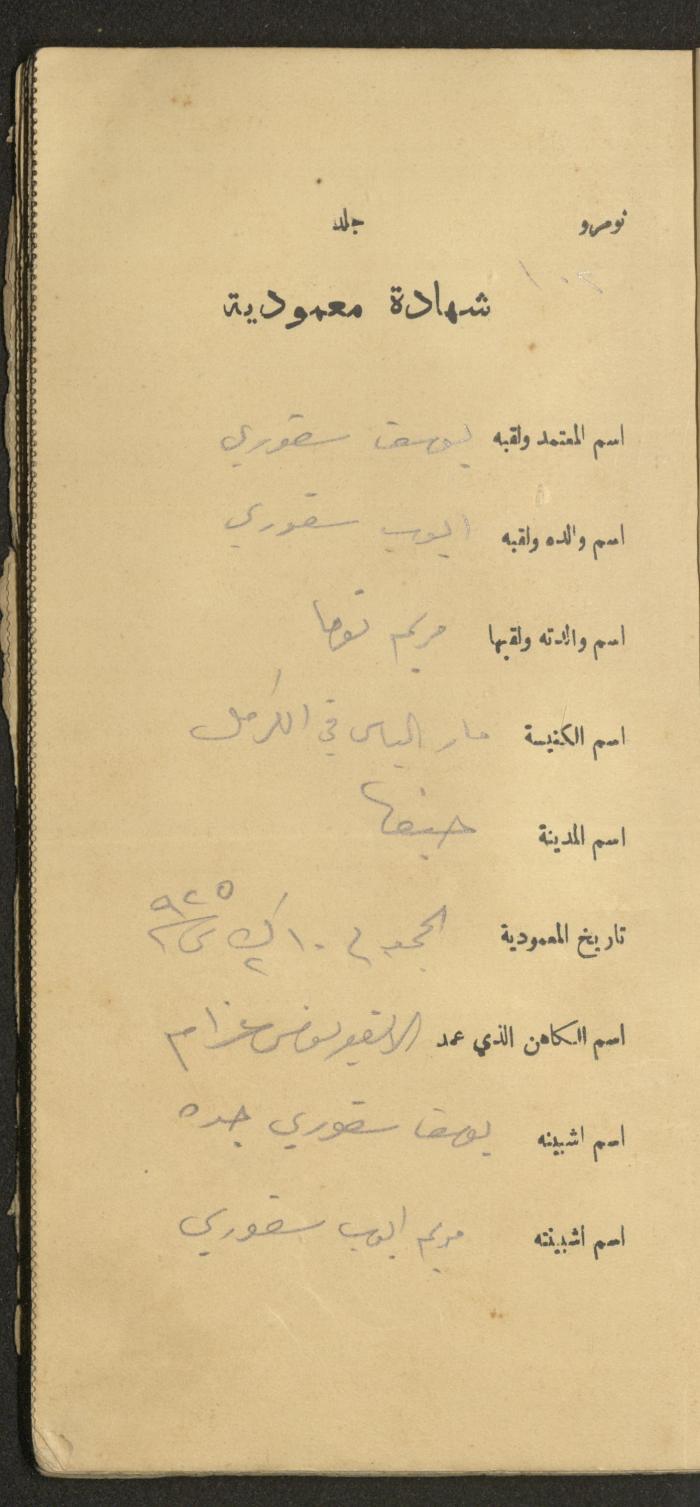 نومرو جلد
١٠٢
شهادة معمودية
اسم المعتمد ولقبه يوسف سقوري
اسم والده ولقبه ايوب سقوري
اسم والدته ولقبها مريم توما
اسم الكنيسة مار الياس في الكرمل
اسم المدينة حيفا
تاريخ المعمودية في ١٠ ك٢ سنة ٩٢٥
اسم الكاهن الذي عمد عزام
اسم اشبينه يوسف سقوري جده
اسم اشبينته مريم ايوب سقوري